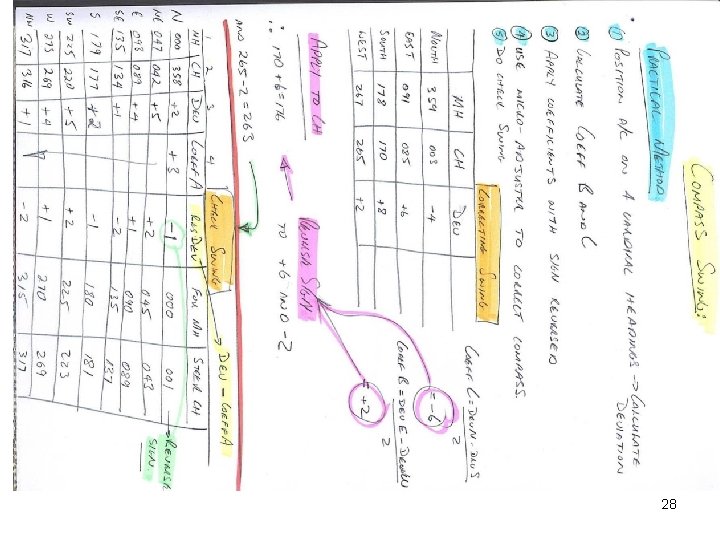 COMPASS SWING:
• PRACTICAL METHOD:
① POSITION A/C ON 4 CARDINAL HEADINGS → CALCULATE DEVIATION
② CALCULATE COEFF B AND C
③ APPLY COEFFICIENTS WITH SIGN REVERSED
④ USE MICRO-ADJUSTER TO CORRECT COMPASS
⑤ DO CHECK SWING
CORRECTING SWING
MH CH DEV
NORTH 359 003 -4
EAST 091 085 +6
SOUTH 178 170 +8
WEST 267 265 +2
COEFF C = DEV N - DEV S
2
= -6
COEFF B = DEV E - DEV W
2
= +2
APPLY TO CH
REVERSE SIGN
TO +6 AND -2
∴ 170+6=176
AND 265-2=263
CHECK SWING
→ DEV - COEFF A
1 2 3 4
MH CH DEV COEFF A RES DEV FOR MH STEER CH
N 000 358 +2 +3 -1 000 001 → REVERSE SIGN.
NE 047 042 +5 +2 045 043
E 093 089 +4 +1 090 089
SE 135 134 +1 -2 135 137
S 179 177 +2 -1 180 181
SW 225 220 +5 +2 225 223
W 273 269 +4 +1 270 269
NW 317 316 +1 -2 315 317
28